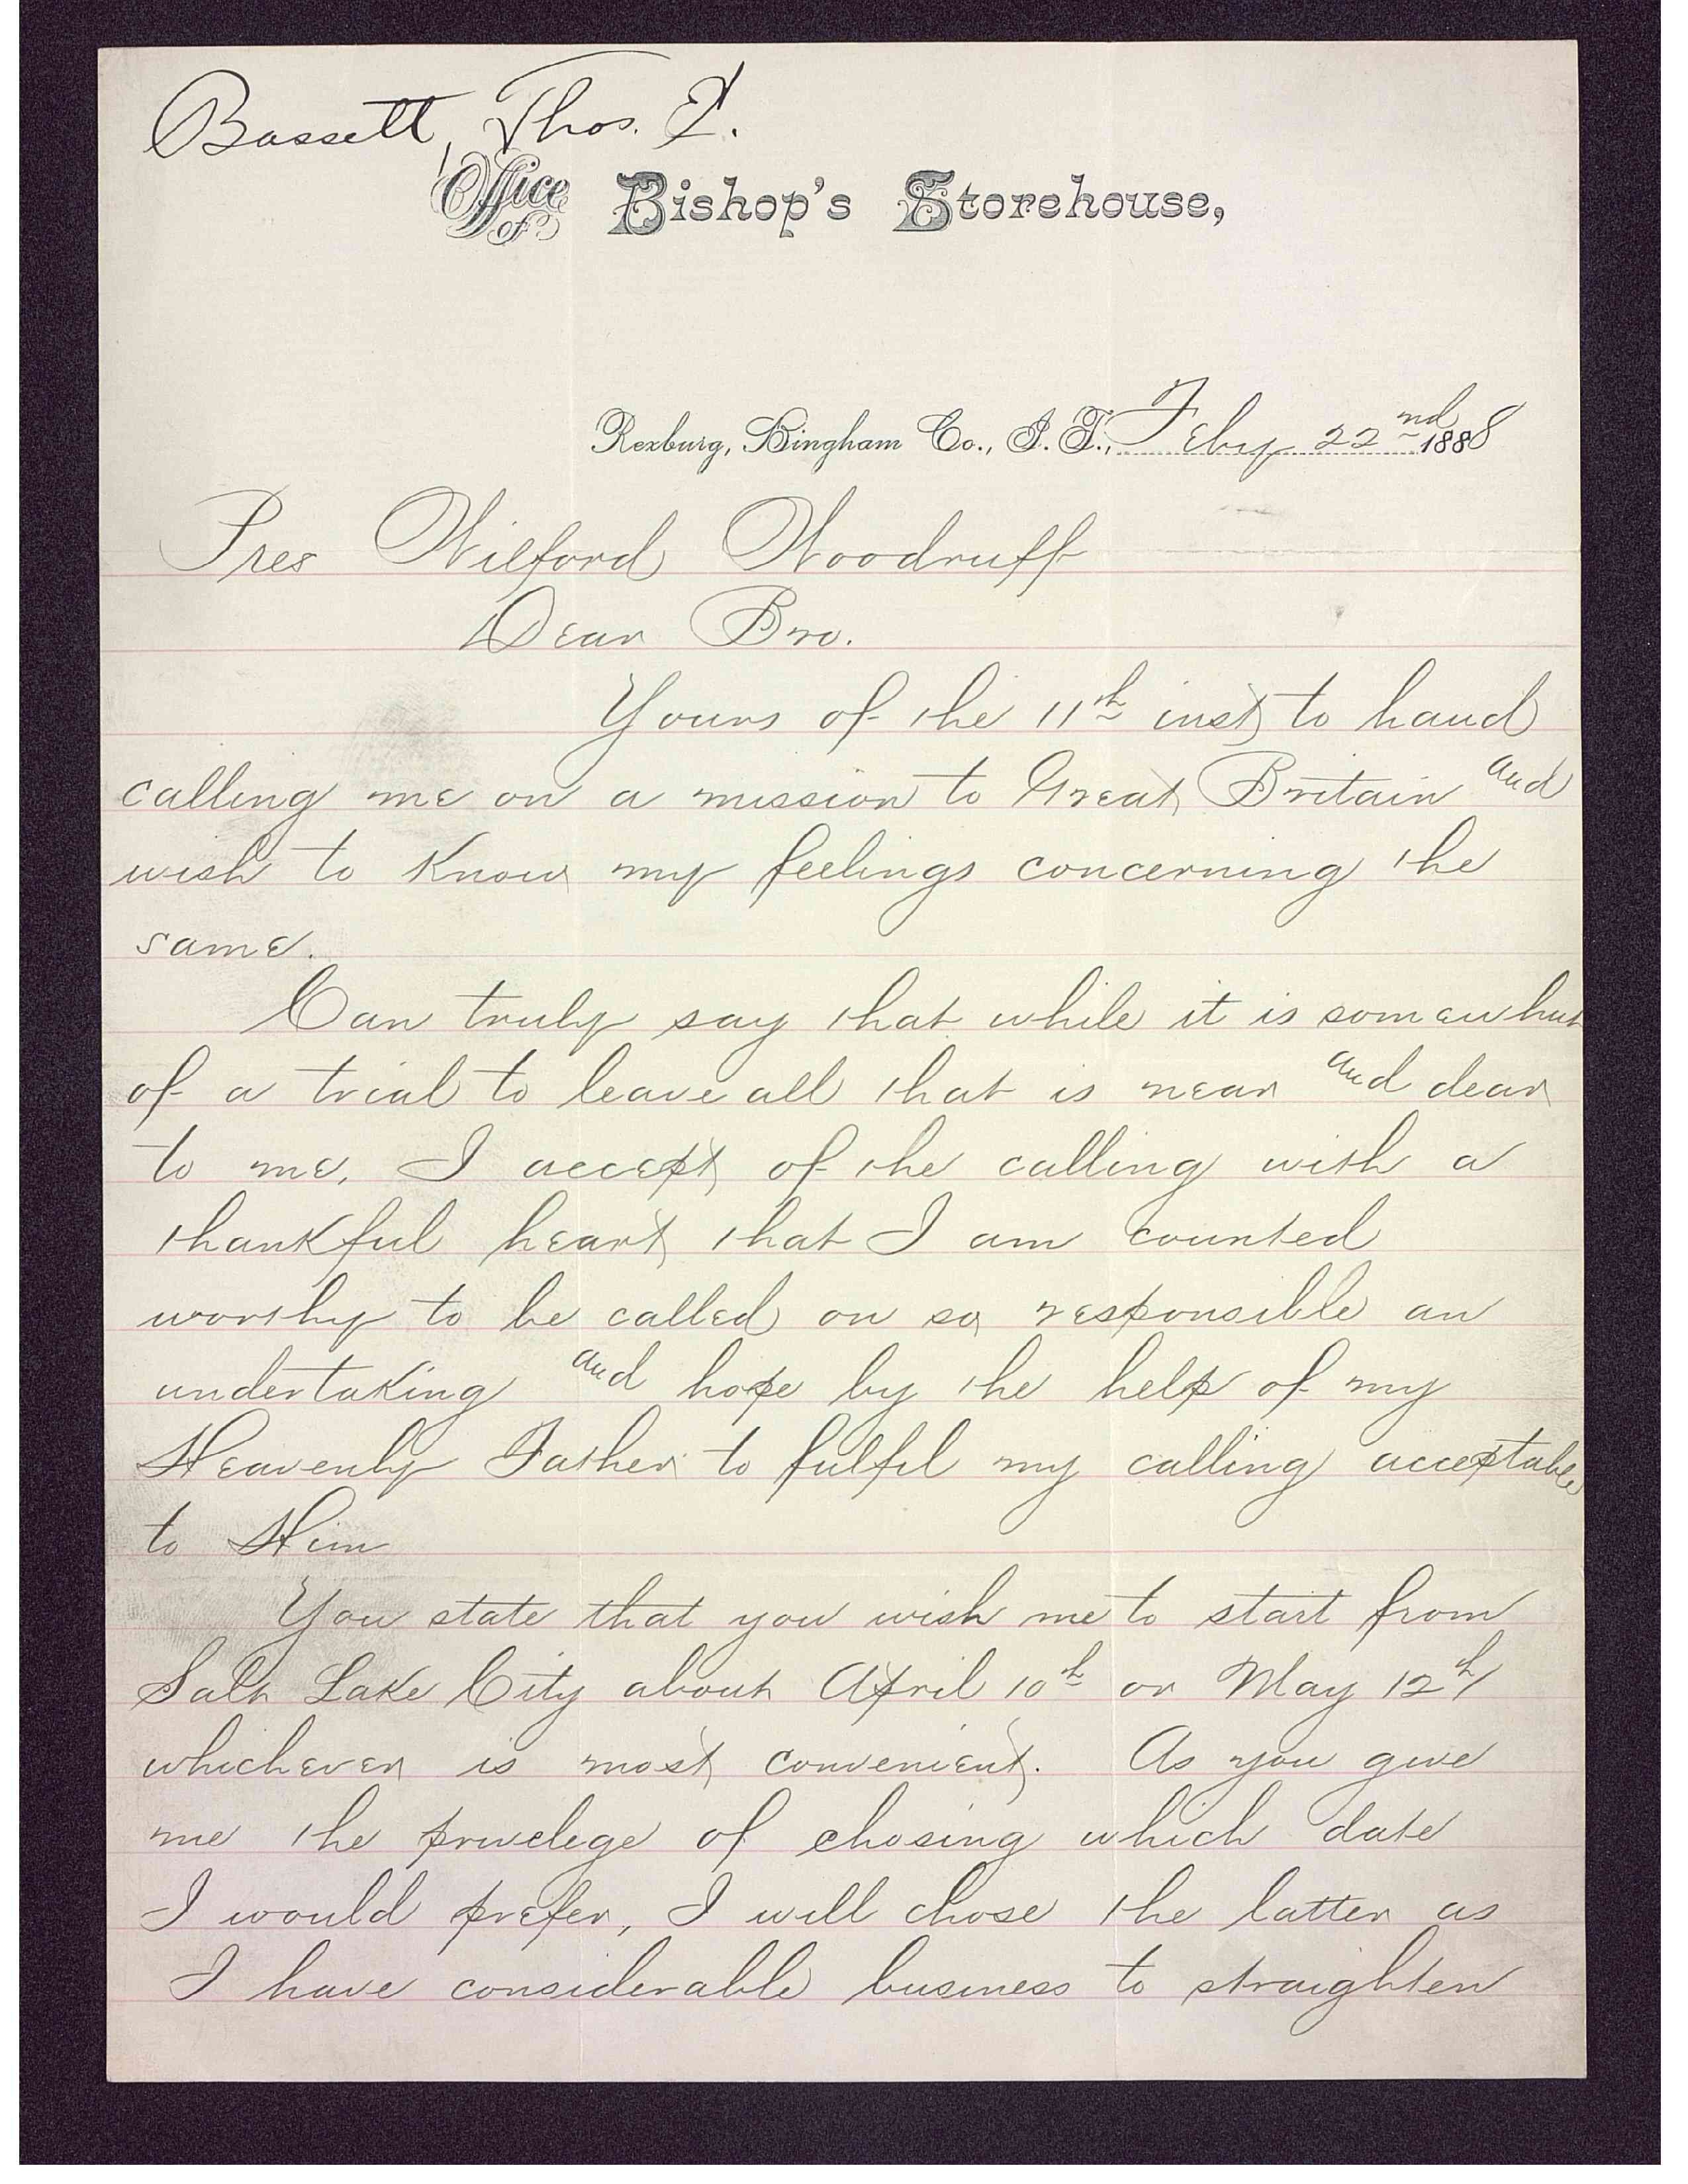 Bassett, Thos. E.
Office of Bishop's Storehouse,
Rexburg, Bingham Co., I. T., Feby 22nd 1888
Pres Wilford Woodruff
Dear Bro.
Yours of the 11th inst to hand
calling me on a mission to Great Britain and
wish to know my feelings concerning the
same.
Can truly say that while it is somewhat
of a trial to leave all that is near and dear
to me, I accept of the calling with a
thankful heart that I am counted
worthy to be called on so responsible an
undertaking and hope by the help of my
Heavenly Father to fulfil my calling acceptable
to Him
You state that you wish me to start from
Salt Lake City about April 10th or May 12th
whichever is most convenient. As you give
me the privelege of chosing which date
I would prefer, I will chose the latter as
I have considerable business to straighten